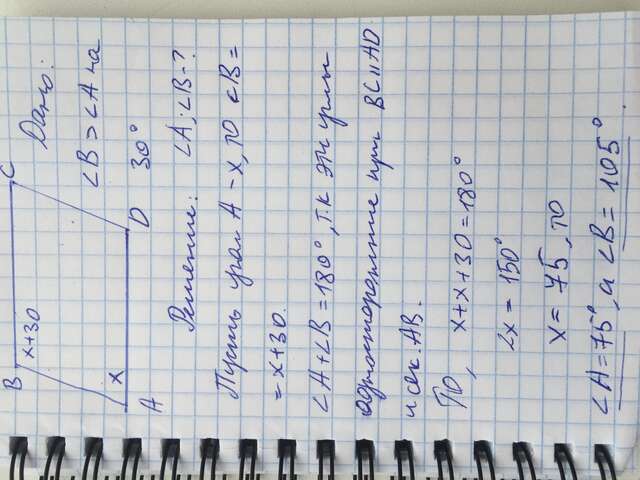 B
C
x+30
x
A
D
Дано:
∠B > ∠A на
30°
Решение:
∠A; ∠B-?
Пусть угол A - x, то ∠B =
= x+30.
∠A+∠B = 180°, т.к эти углы
односторонние при BC || AD
и сек. AB.
То, x+x+30=180°
2x = 150°
x = 75, то
∠A=75°, а ∠B = 105°.